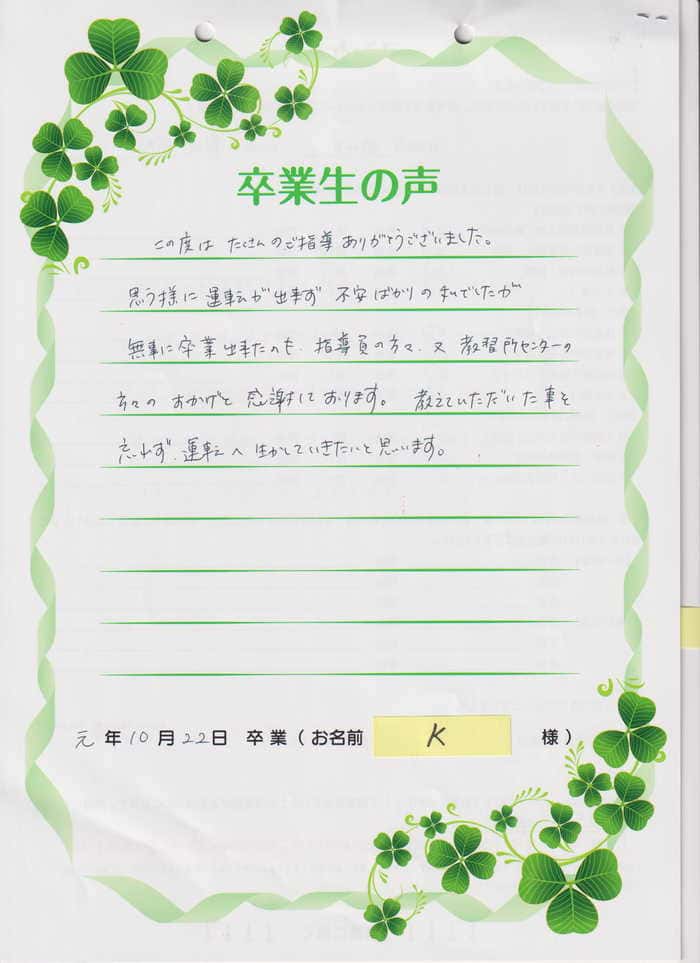 卒業生の声
この度は たくさんのご指導ありがとうございました。
思う様に運転が出来ず 不安ばかりの私でしたが
無事に卒業出来たのも、指導員の方々、又 教習所センターの
方々の おかげと 感謝しております。 教えていただいた事を
忘れず、運転へ 生かしていきたいと思います。
元年10月22日 卒業(お名前 K 様)